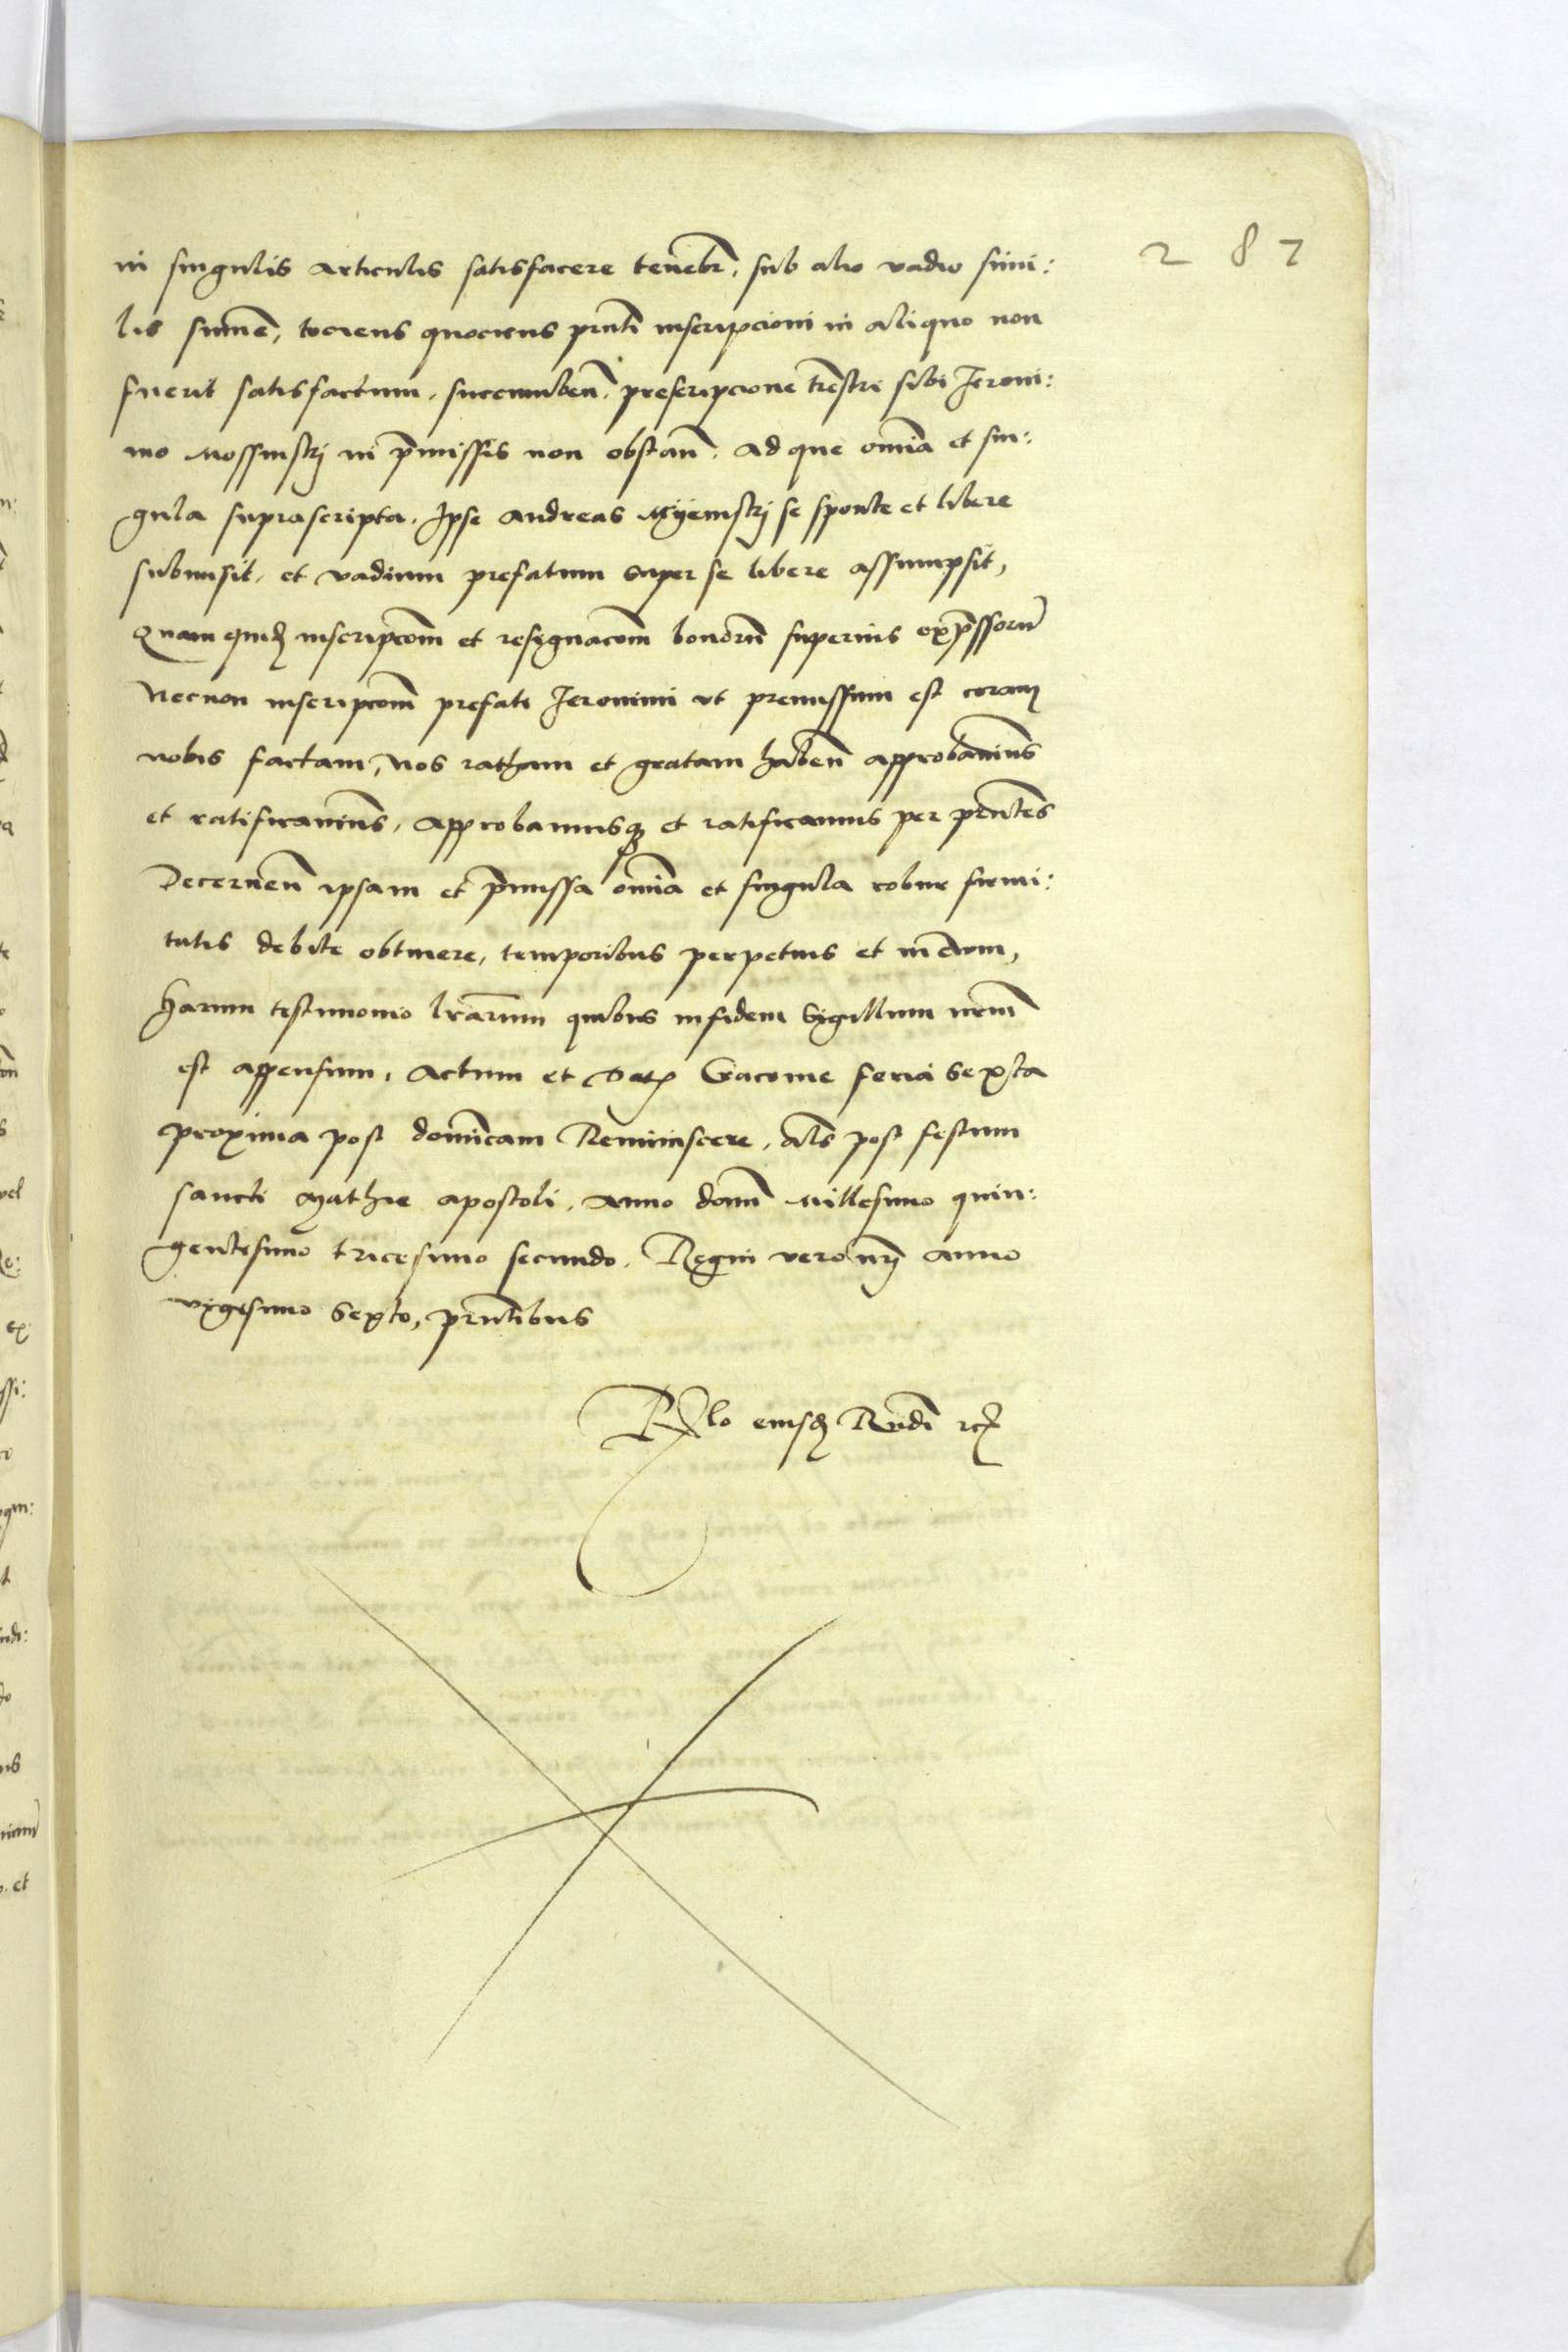 287
in singulis articulis satisfacere tenebr̃, sub alio vadio simi:
lis sum̃e, tociens quociens pñti inscripcioni in aliquo non
fuerit satisfactum, succumbeñ, prescripcione tr̃estri sibi Jeroni:
mo Mossinskj in p̃missis non obstañ. Ad que om̃ia et sin:
gula suprascripta, Ipse Andreas se sponte et libere
submisit, et vadium prefatum super se libere assumpsit,
Quam quid inscripc̃om et resignac̃om bonor̃ superius exp̃ssor̃
Necnon inscripc̃om prefati Jeronimi ut premissum est coram
nobis factam, Nos ratham et gratam habeñ approbavim̃s
et ratificavim̃s, approbamusq et ratificamus per pñtes
Decerneñ ipsam et p̃missa om̃ia et singula robur firmi:
tatis debite obtinere, temporibus perpetuis et in evum,
Harum testimonio lr̃arum quibus in fidem Sigillum nr̃m
est appensum, Actum et Dat Cracovie feria Sexta
proxima post domi̅cam Reminiscere, al̃s post festum
sancti Mathie apostoli, Anno domĩ Millesimo quin:
gentesimo tricesimo secundo. Regni vero nr̃j anno
vigesimo Sexto, pñtibus
Rlo eiusd Rñdi